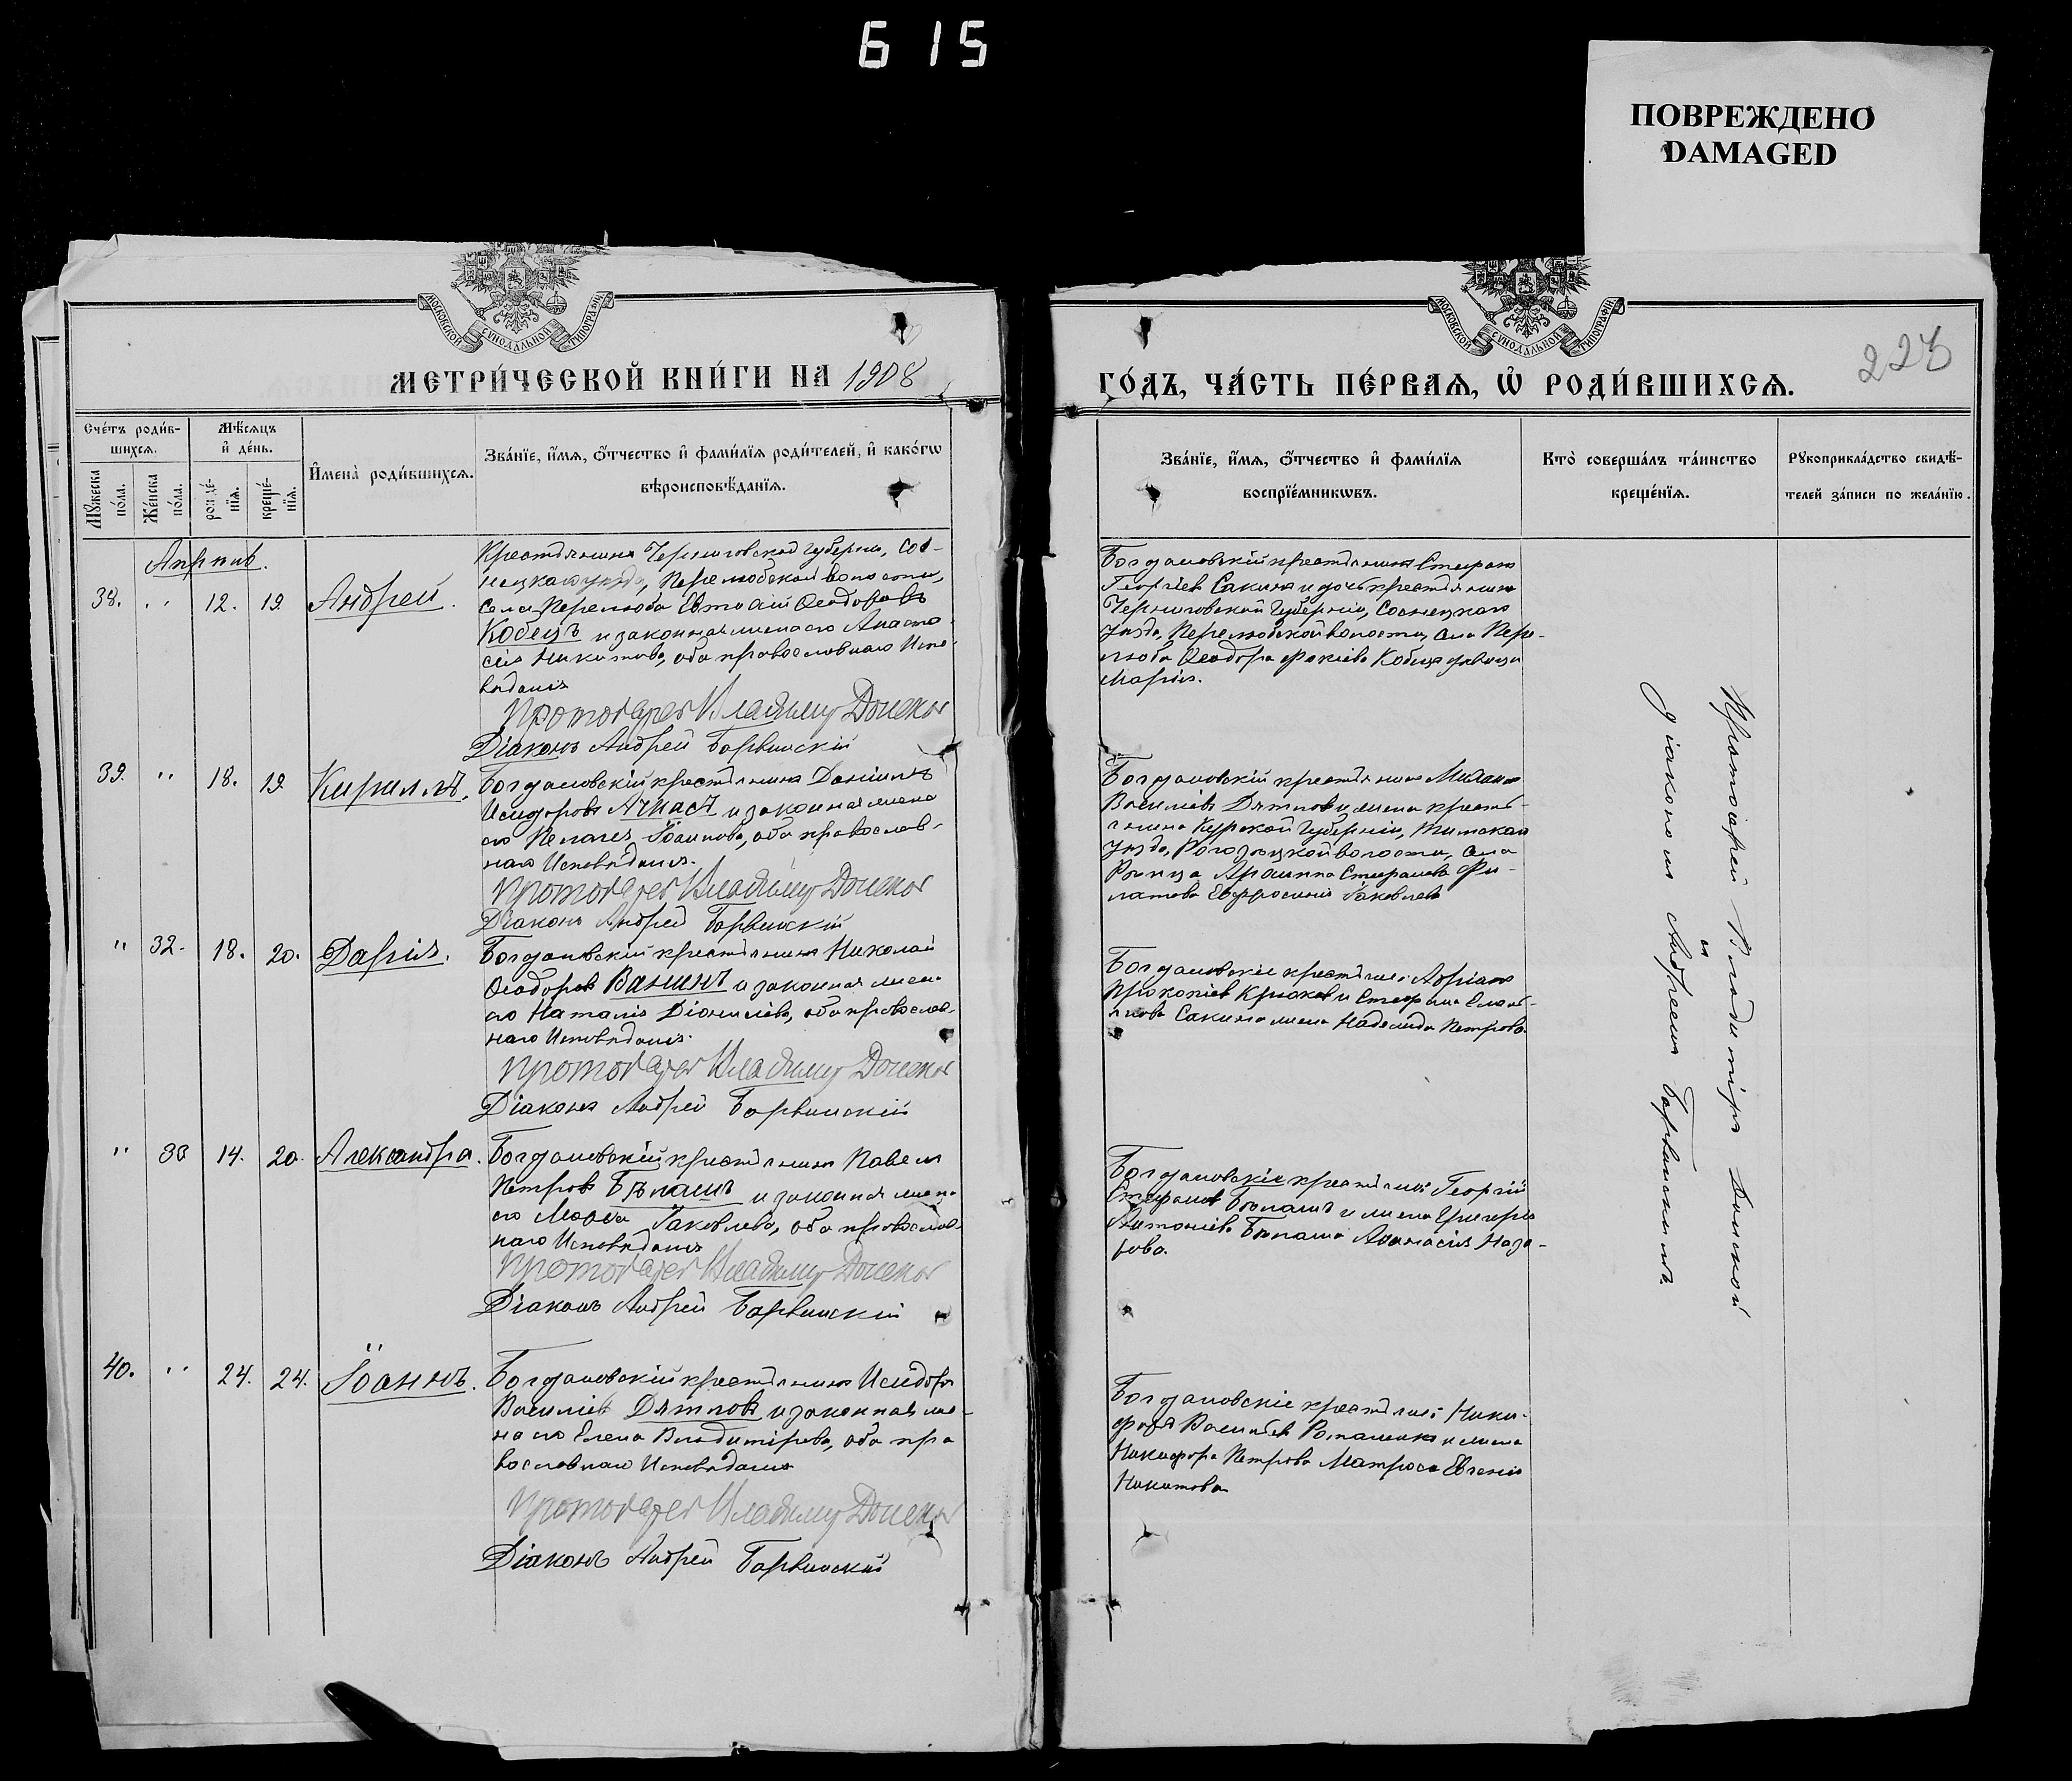 615
ПОВРЕЖДЕНО
DAMAGED
МОСКОВСКОЙ СѴНОДАЛЬНОЙ ТИПОГРАФІИ
МОСКОВСКОЙ СѴНОДАЛЬНОЙ ТИПОГРАФІИ
МЕТРИ́ЧЕСКОЙ КНИ́ГИ НА 1908
ГО́ДЪ, ЧА́СТЬ ПЕ́РВАѦ, Ѡ҆ РОДИ́ВШИХСѦ.
Сче́тъ роди́в-
шихсѧ.
Мѣ́сѧцъ
и҆ де́нь.
Мꙋ́жеска
по́ла.
Же́нска
по́ла.
рожде́-
нїѧ.
креще́-
нїѧ.
И҆мена̀ роди́вшихсѧ.
Зва́нїе, и҆́мѧ, ѻ҆́тчество и҆ фами́лїѧ роди́телей, и҆ како́гѡ
вѣроисповѣ́данїѧ.
Зва́нїе, и҆́мѧ, ѻ҆́тчество и҆ фами́лїѧ
воспрїе́мникѡвъ.
Кто̀ соверша́лъ та́инство
креще́нїѧ.
Рꙋкоприкла́дство свидѣ́-
телей за́писи по жела́нїю.
Апрѣль.
38. " 12. 19. Андрей.
Крестьянинъ Черниговской губерніи, Сос-
ницкаго уѣзда, Перелюбской волости,
села Перелюба Евтихій Ѳеодоровъ
Кобецъ и законная жена его Анаста-
сія Никитова, оба православнаго Испо-
вѣданія
Протоіерей Владимиръ Донской
Діаконъ Андрей Барвинскій
Богдановскій крестьянинъ Стефанъ
Георгіевъ Сакинъ и дочь крестьянина
Черниговской Губерніи, Сосницкаго
уѣзда, Перелюбской волости, села Пере-
люба Ѳеодора Кобеца дѣвица
Марія.
39. " 18. 19. Кириллъ.
Богдановскій крестьянинъ Даніилъ
Исидоровъ Ачкасъ и законная жена
его Пелагія Іоаннова, оба православ-
наго Исповѣданія.
Протоіерей Владимиръ Донской
Діаконъ Андрей Барвинскій
Богдановскій крестьянинъ Михаилъ
Василіевъ Дятловъ и жена кресть-
янина Курской Губерніи, Тимскаго
уѣзда, волости, села
Стефанова Фи-
латова Евфросинія Іаковлева
" 32. 18. 20. Дарія.
Богдановскій крестьянинъ Николай
Ѳеодоровъ Ванинъ и законная жена
его Наталія Діонисіева, оба православ-
наго Исповѣданія.
Протоіерей Владимиръ Донской
Діаконъ Андрей Барвинскій
Богдановскіе крестьяне: Адріанъ
Прокопіевъ Крюковъ и Стефана
Сакина жена Надежда Петрова.
" 33 14. 20. Александра.
Богдановскій крестьянинъ Павелъ
Петровъ Бѣлашъ и законная жена
его Марѳа Іаковлева, оба православ-
наго Исповѣданія
Протоіерей Владимиръ Донской
Діаконъ Андрей Барвинскій
Богдановскіе крестьяне: Георгій
Стефановъ Бѣлашъ и жена Григорія
Антоніева Бѣлаша Аѳанасія Наза-
рова.
40. " 24. 24. Іоаннъ.
Богдановскій крестьянинъ Исидоръ
Василіевъ Дятловъ и законная же-
на его Елена Владимірова, оба пра
вославнаго Исповѣданія
Протоіерей Владимиръ Донской
Діаконъ Андрей Барвинскій
Богдановскіе крестьяне: Ники-
форъ Василіевъ и жена
Никифора Петрова Матроса Евгенія
Никитова
Протоіерей Владиміръ Донской
съ
діакономъ Андреемъ Барвинскимъ.